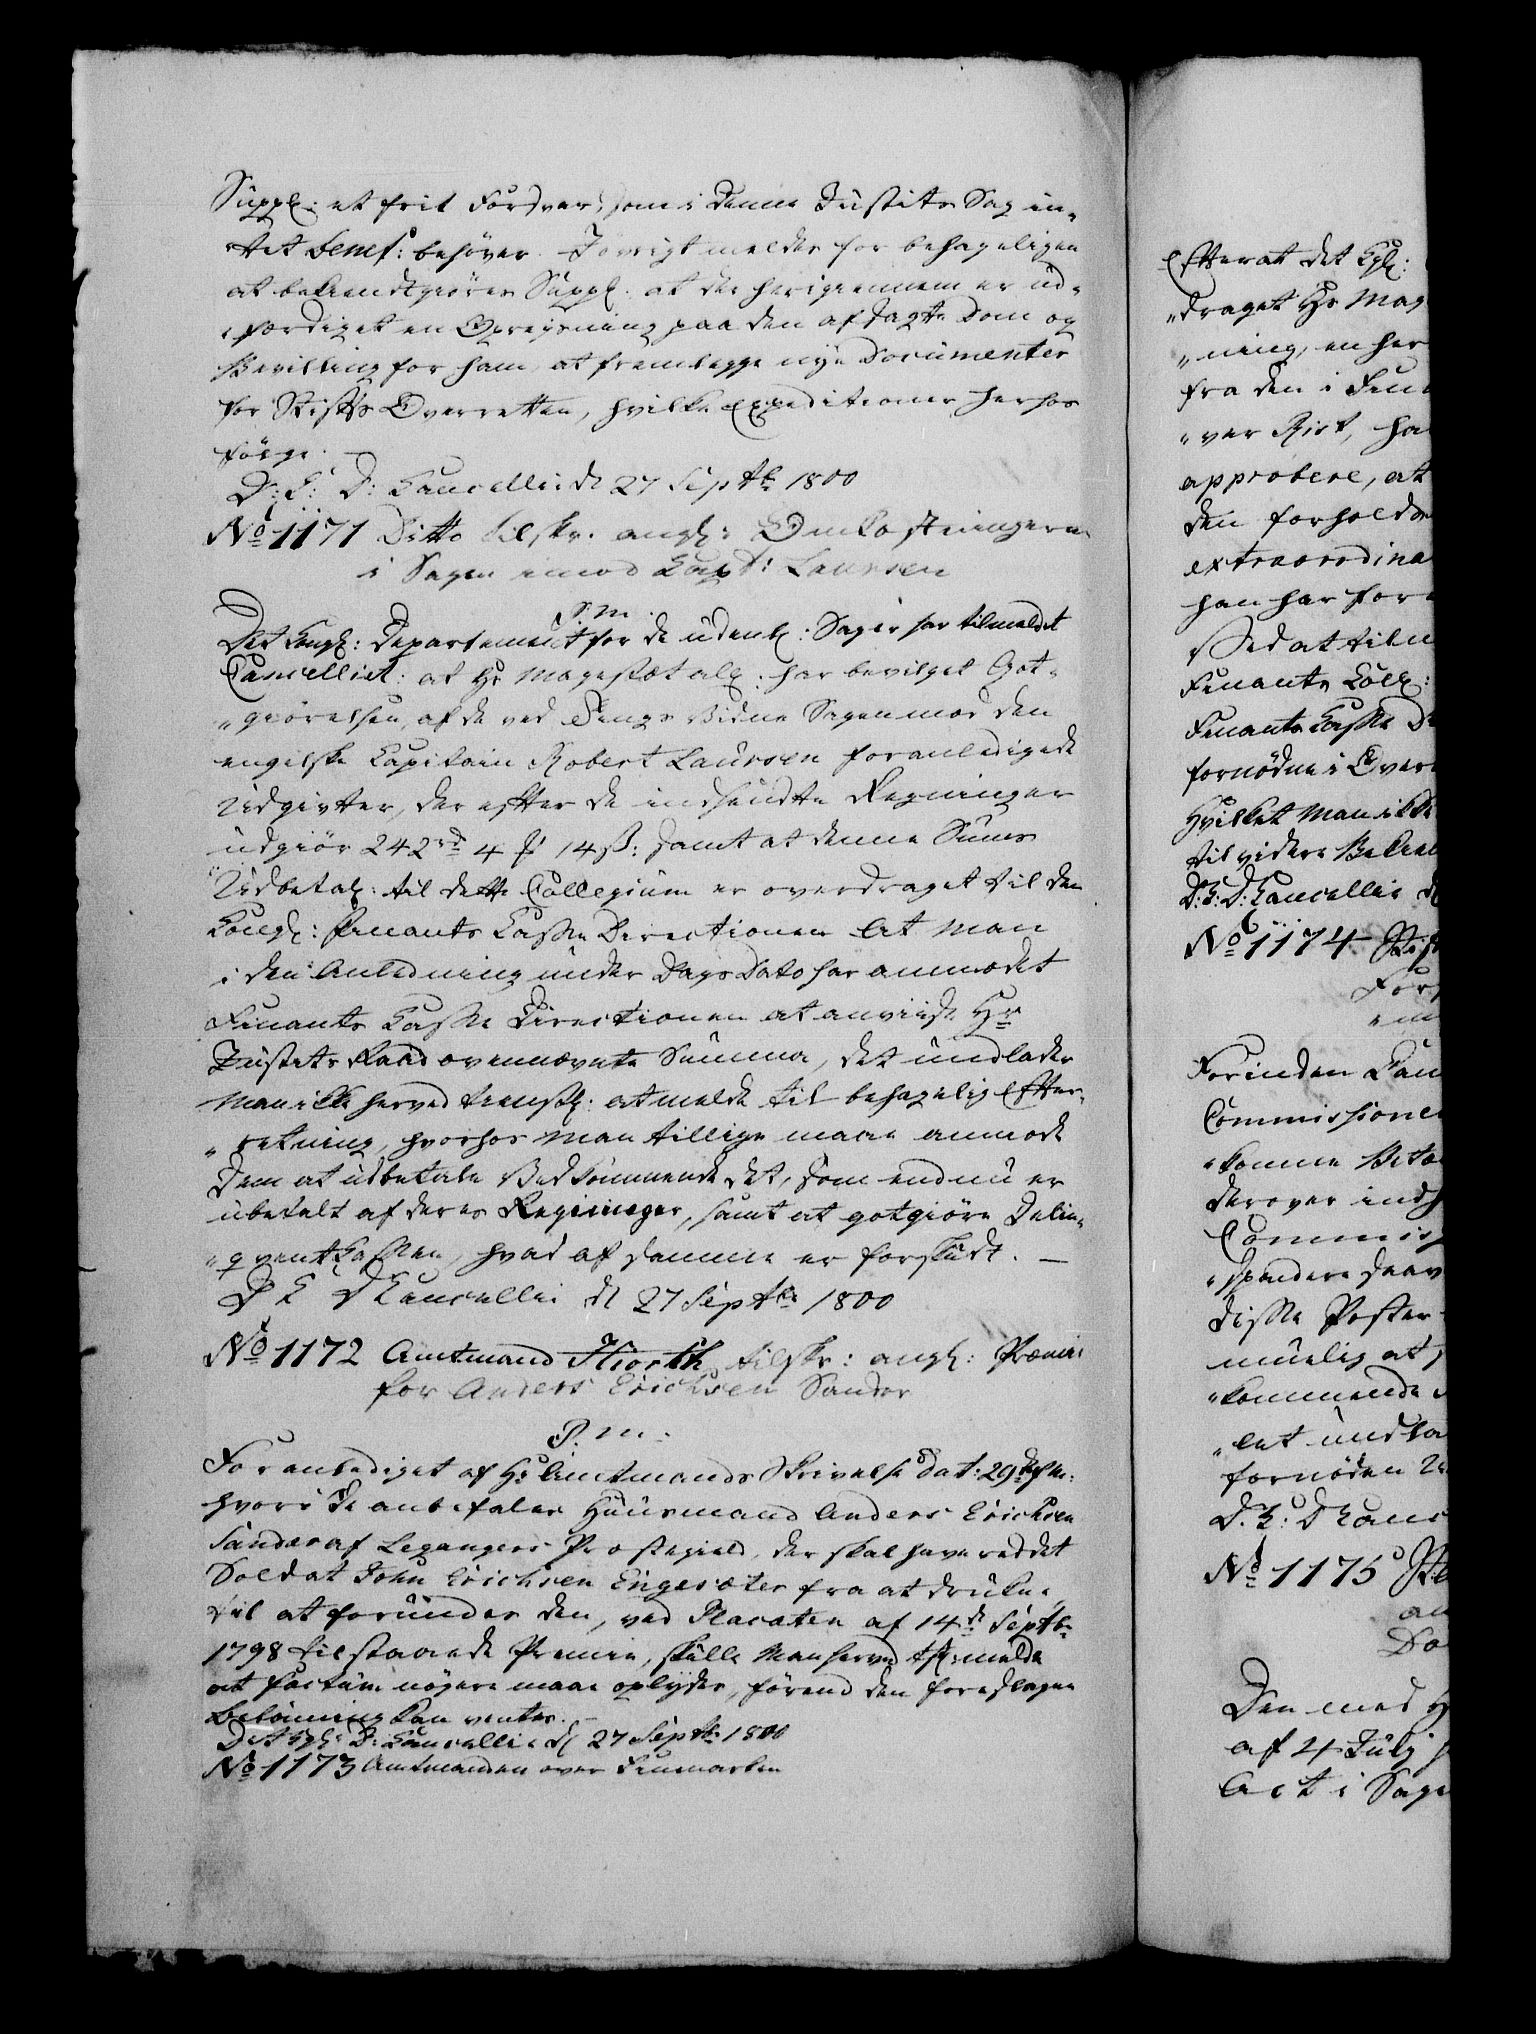 Suppl: et frit Forsvar, som i denne Justits Sag in-
tet Benef: behøver. Jøvrigt meldes for behageligen
at bekiendtgiøres Suppl. at der herigiennem er ud-
færdiget en Opreysning paa den afsagte Dom og
Bevilling for ham at fremlegge nye Documenter
for Stifts Overretten, hvilke Expeditioner herhos
følge.
D: C: D: Cancellie d 27 Septbr 1800
No 1171 Ditto tilskr. angl: Omkostningerne
i Sagen imod Capt: Laursen
P.M.
Det Kongl: Departement for de udenl: Sager har tilmeldet
Cancelliet: at Hs Majestæt alln: har bevilget Got-
giørelsen af de ved Tings Vidne Sagen mod den
engelske Capitain Robert Laursen foranledigede
Udgivter, der efter de indsendte Regninger
udgiør 242 rd 4 ß 14 ß: samt at denne Sums
Udbetal: til dette Collegium er overdraget til den
Kongl: Finants Casse Directionen At Man
i den Anledning under Dags Dato har anmodet
Finants Casse Directionen at anviise Hr
Justits Raad ovennævnte Summa, det undlader
Man ikke herved tienstl. at melde til behagelig Efter-
retning, hvorhos Man tillige maae anmode
Dem at udbetale Vedkommende det, som endnu er
ubetalt af deres Regninger, samt at gotgiøre Delin-
qventKassen, hvad af samme er forskudt. —
D C D Cancellie d 27 Septbr 1800
No 1172 Amtmand Hiorth tilskr: angl: Præmie
for Anders Erichsen Sander
P.M.
Foranlediget af Hr Amtmands Skrivelse dat: 29de f.M:
hvori De anbefaler Huusmand Anders Erichsen
Sander af Leganger Præstegield, der skal have reddet
Soldat John Erichsen Engesæter fra at drukne,
til at forundes den, ved Placaten af 14de Septbr
1798 tilstaaede Premie, skulle Man herved tstl: melde
at factum nøyere maae oplyses, førend den foreslagne
Belønning kan ventes. —
Det Kgl: D: Cancellie d 27 Septbr 1800
No 1173 Amtmanden over Finmarken
Efterat det Kgl:
draget Hr Mag
ning, en her
fra den i Fin
ver Rist, ha
approbere, at
den forholds
extraordina
han har for
Ved at tilm
Finants Coll:
Finants Casse D
fornødne i Over
Hvilket Man ikke
til videre Bekien
D: C: D: Cancellie d
No 1174 Stif
For
em
Forinden Can
Commissione
komme Beta
derover indh
Commis
spondere saav
disse Poster
muelig at
kommende
let undla
fornøden U
D. C: D Canc
No 1175
an
Do
Den med H
af 4 July
Act i Sage